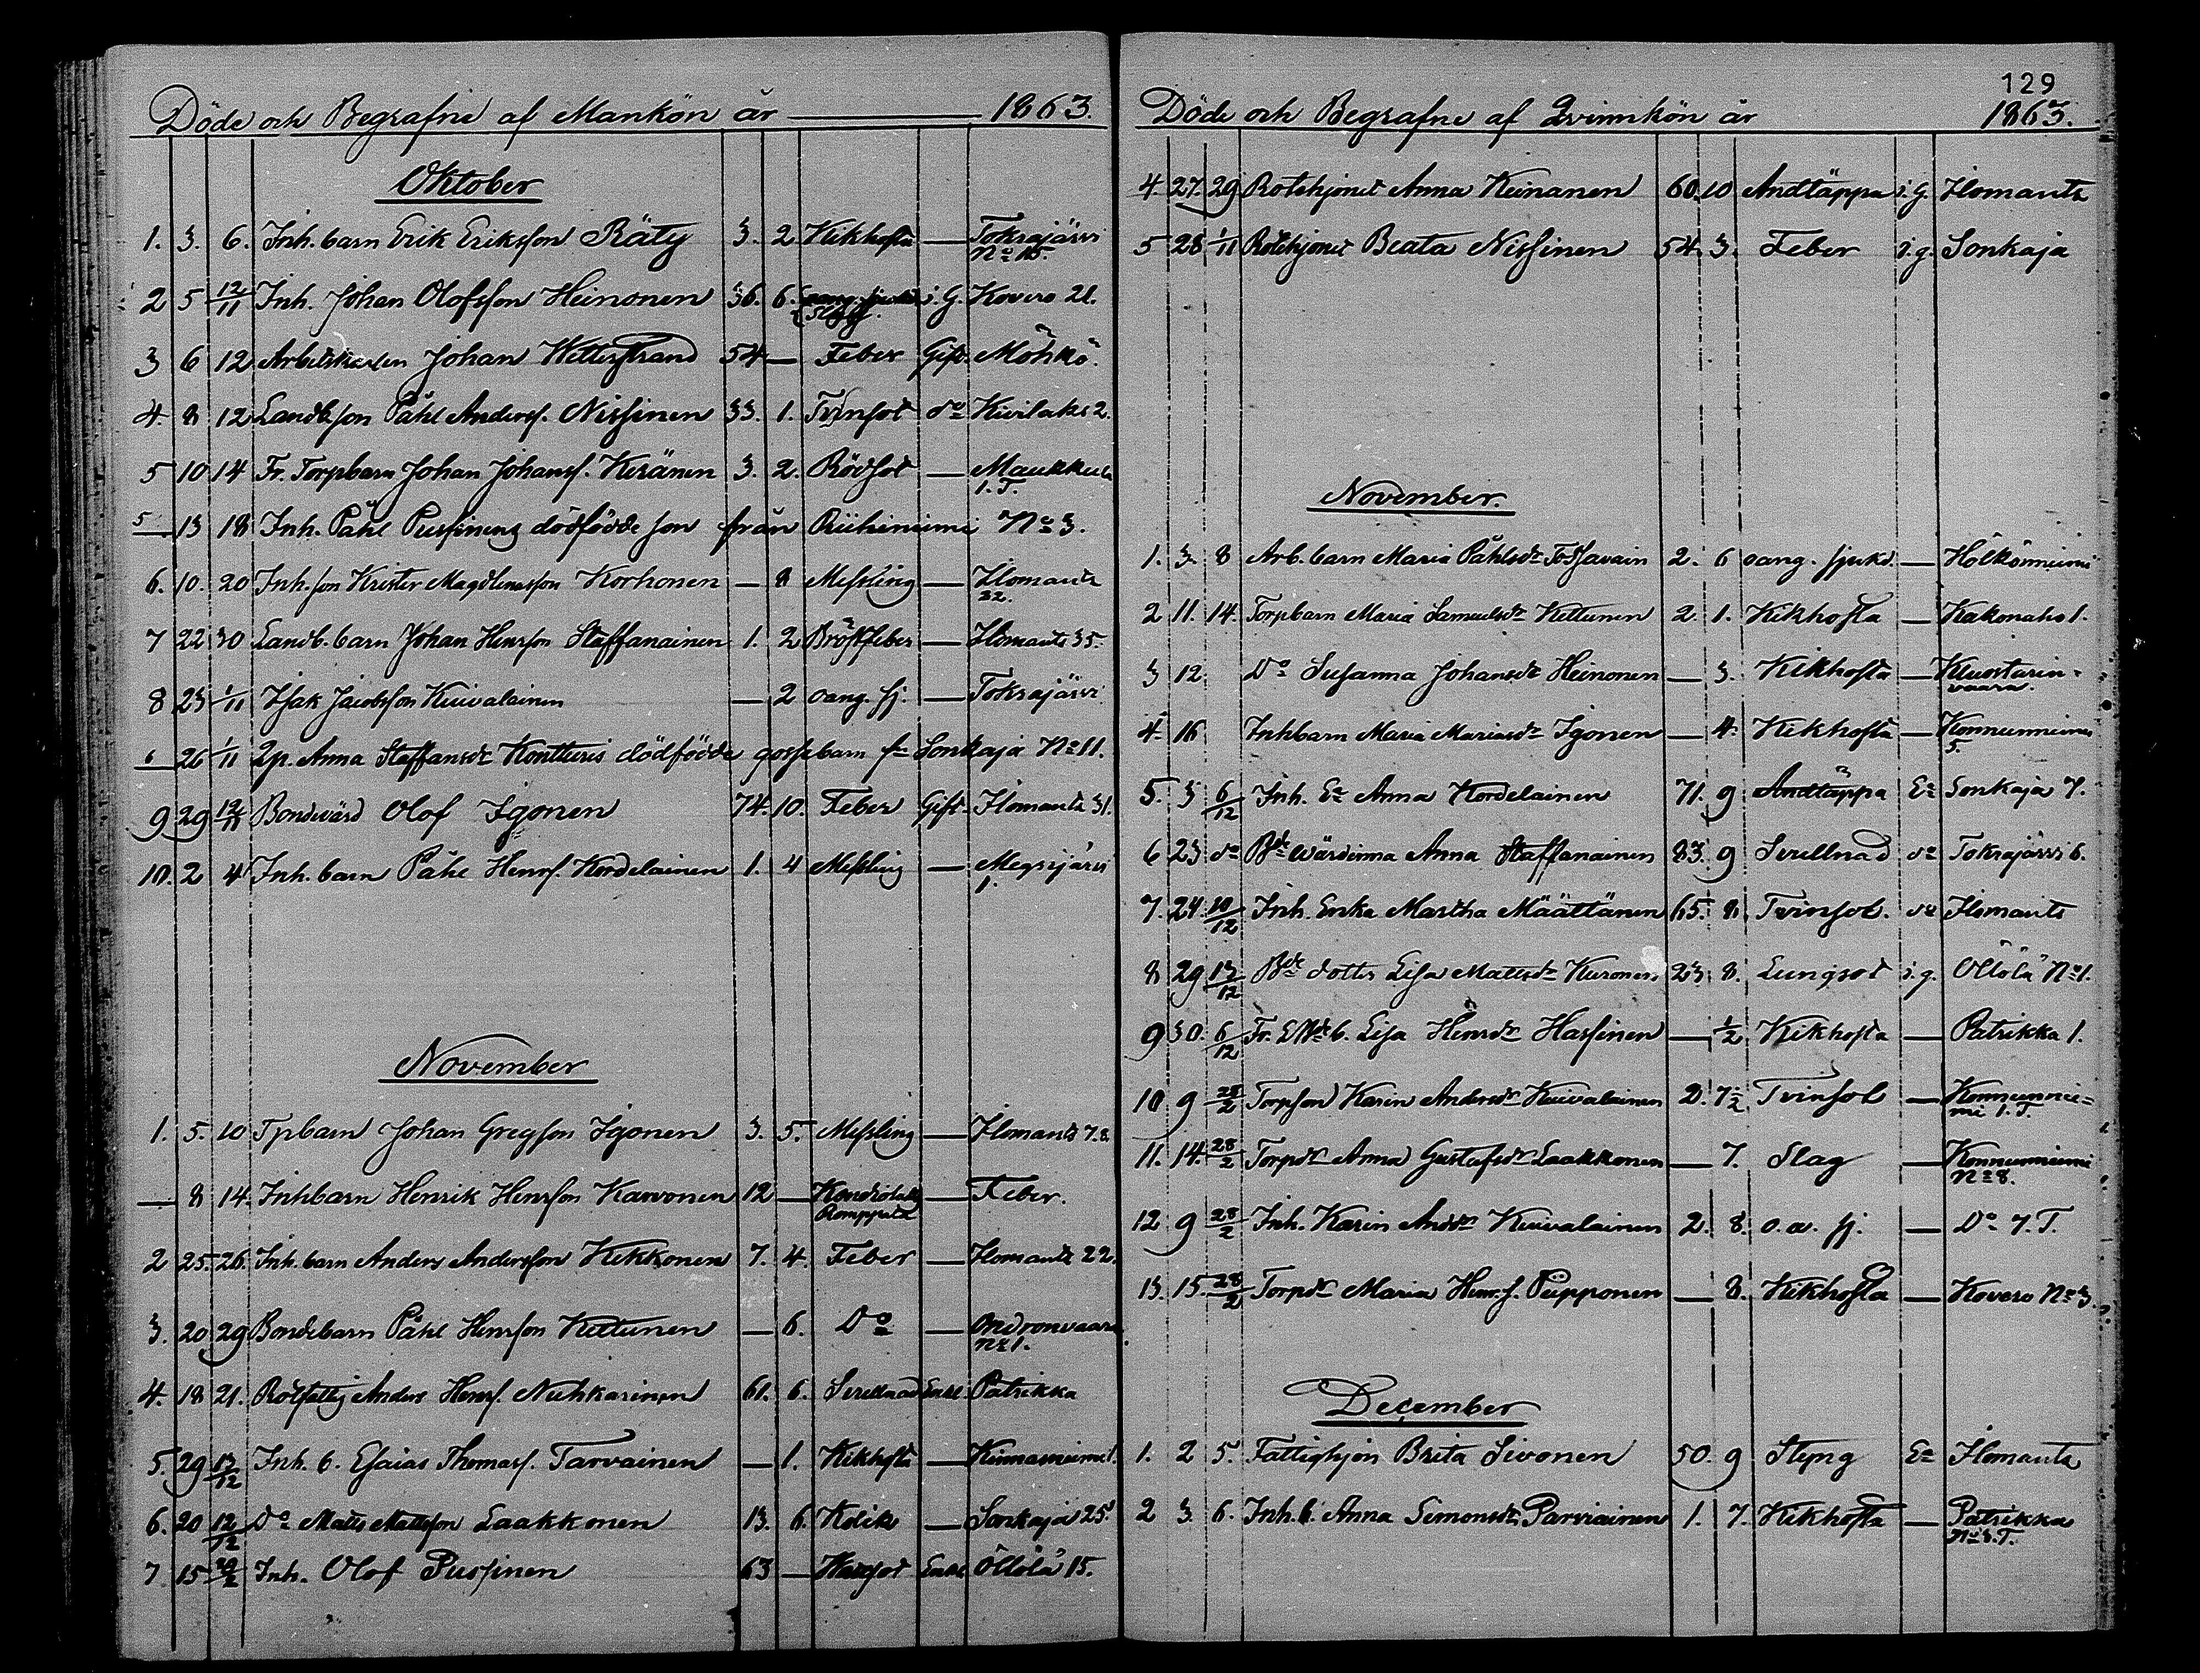 Döde och Begrafne af Mankön år 1863.
Oktober
1. 3. 6. Inh. barn Erik Eriksson Räty 3. 2. Kikhosta — Tokrajärvi
No 15.
2 5 12/11 Inh. Johan Olofsson Heinonen 36. 6. oang. sjukd. i. G. Kovero 21.
Slag
3 6 12 Arbetskarlen Johan Wetterstrand 54 — Feber Gift. Möhkö.
4. 8 12 Landb. son Påhl Anderss. Nissinen 33. 1. Tvinsot do Kuvilaks 2.
5 10 14 Fr. Torpbarn Johan Johanss. Keränen 3. 2. Rödsot — Maukkula
1. T.
5 13 18 Inh. Påhl Pussinens dödfödde son från Riihiniemi No 3.
6. 10. 20 Inh. son Krister Magdlenasson Korhonen — 8 Messling — Ilomants
32.
7 22 30 Landb. barn Johan Henrsson Staffanainen 1. 2 Bröstfeber — Ilomants 35.
8 23 1/11 Isak Jacobsson Kuivalainen — 2 oang. sj. — Tokrajärvi
6 26 1/11 Qp. Anna Staffansdr Kontturis dödfödde gossebarn fn Sonkaja No 11.
9 29 12/11 Bondevärd Olof Igonen 74. 10. Feber Gift. Ilomants 31.
10. 2 4 Inh. barn Påhl Henrs. Kordelainen 1. 4 Messling — Megrijärvi
1.
November
1. 5. 10 Tpbarn Johan Gregsson Igonen 3. 5. Messling — Ilomants 78.
— 8 14. Inhbarn Henrik Henrsson Karvonen 12 — Feber.
2 25. 26. Inh. barn Anders Andersson Kekkonen 7. 4. Feber — Ilomants 22.
3. 20 29 Bondebarn Påhl Henrsson Kettunen — 6. Do — Ondronvaara
No 1.
4. 18 21. Rotfattig Anders Henrs. Nuhkarinen 61. 6. Svullnad Enkl. Patrikka
5. 29 13/12 Inh. b. Esaias Thomass. Tarvainen — 1. Kikhosta — Kinnasniemi 1.
6. 20 12/12 Do Matts Mattsson Laakkonen 13. 6. Kolik — Sonkaja 25.
7 15 Inh. Olof Pussinen 63 — Enkl Öllölä 15.
129
Döde och Begrafne af Qvinnkön år 1863.
4. 27. 29 Rotehjonet Anna Keinanen 60. 10 Andtäppa i. G. Ilomants
5 28 1/11 Rotehjonet Beata Nissinen 54. 3. Feber i. g. Sonkaja
November.
1. 3. 8 Arb. barn Maria Påhlsdr 2. 6 oang. sjukd. — Hölkönniemi
2 11. 14. Torpbarn Maria Samuelsdr Kettunen 2. 1. Kikhosta — Kakonaho 1.
3 12. Do Susanna Johansdr Heinonen — 3. Kikhosta — Kluostarin-
vaara.
4. 16 Inhbarn Maria Mariasdr Igonen — 4. Kikhosta — Konnunniemi
5.
5. 3 6/12 Inh. Ea Anna Kordelainen 71. 9 Andtäppa Ea Sonkaja 7.
6 23 do Bde Wärdinna Anna Staffanainen 83. 9 Svullnad do Tokrajärvi 6.
7. 24. 10/12 Inh. Enka Martha Määttänen 65. 8. Tvinsot. do Ilomants
8 29 13/12 Bde dotter Lisa Mattsdr Kuronen 23 8. Lungsot i. g. Öllölä No 1.
9 30. 6/12 Fr. b. Lisa Henrsdr Hassinen — 1/2 Kikhosta — Patrikka 1.
10 9 28/2 Torpson Karin Andersdr Kuivalainen 2. 7 1/2 Tvinsot — Konnunnie-
mi 1. T.
11. 14. 28/2 Torpdr Anna Gustafsdr Laakkonen — 7. Slag — Konnunniemi
No 8.
12 9 28/2 Inh. Karin Andsdr Kuivalainen 2. 8. o. a. sj. — Do 7. T.
13. 15. 28/2 Torpdr Maria Henrs. Piipponen — 8. Kikhosta — Kovero No 3.
December
1. 2 5. Fattighjon Brita Sivonen 50. 9 Styng Ea Ilomants
2 3. 6. Inh. b. Anna Simonsdr Parviainen 1. 7. Kikhosta — Patrikka
No 3. T.